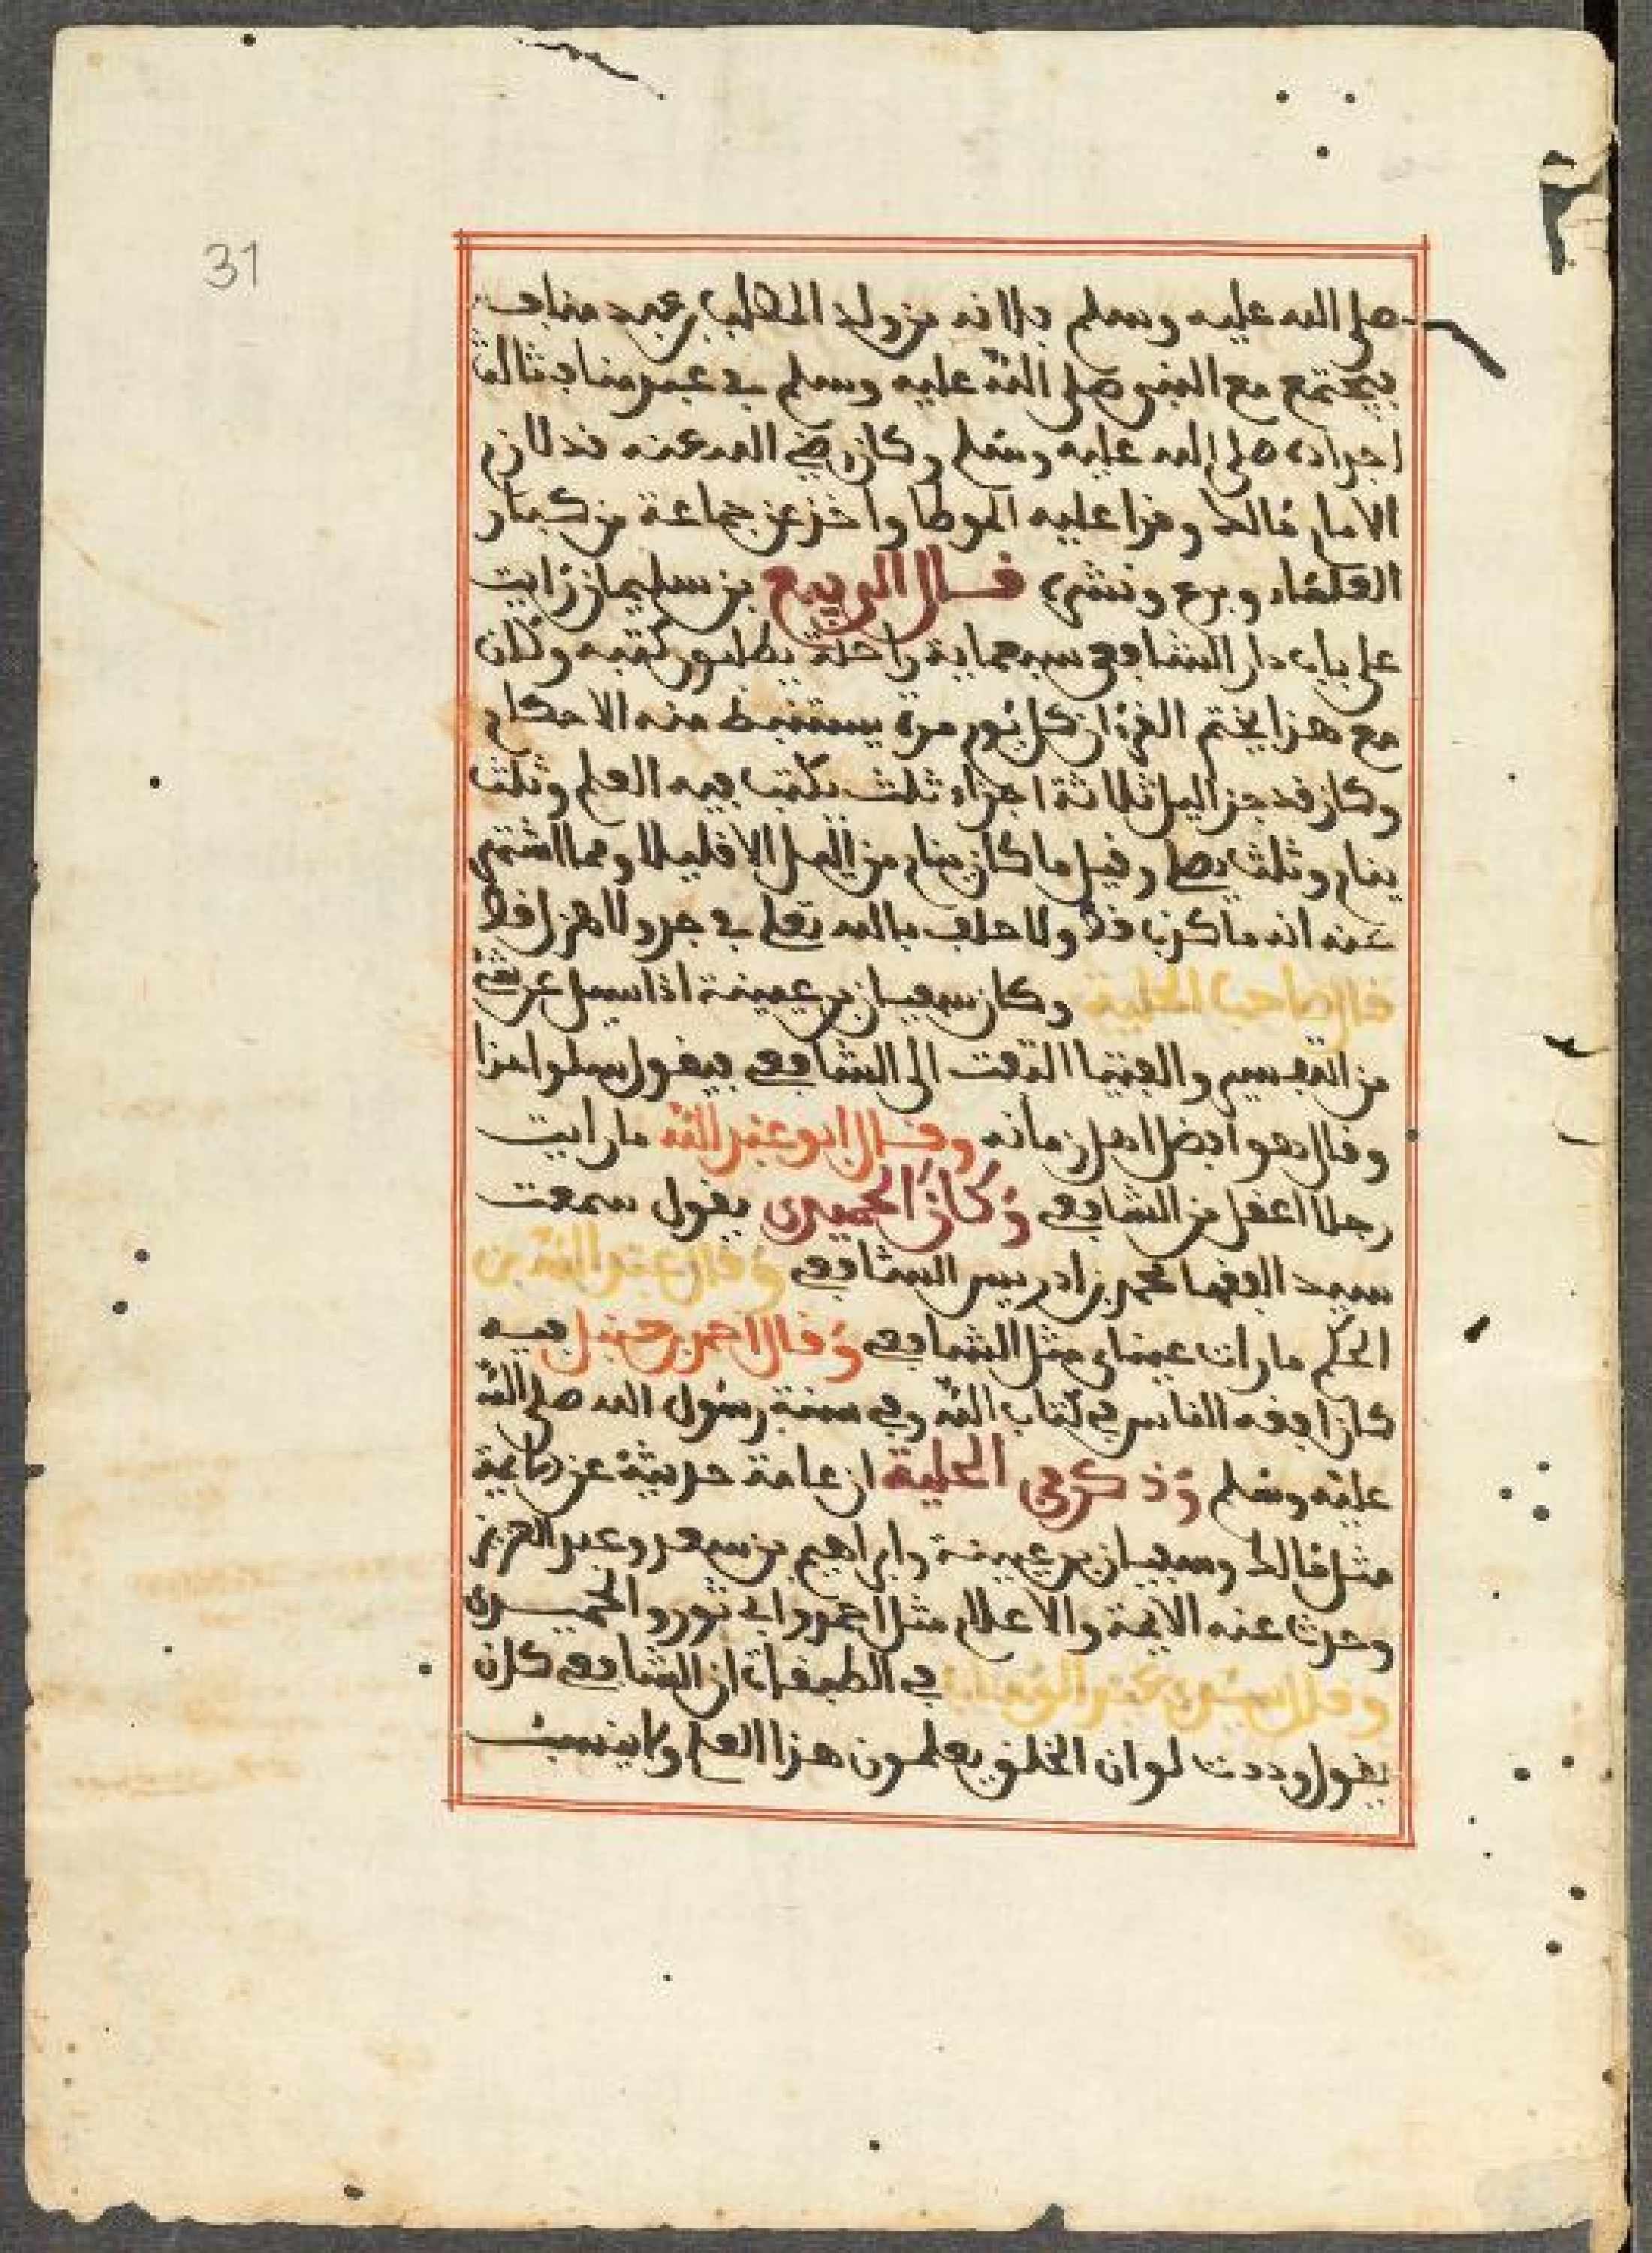 31
صلى الله عليه وسلم بلانه من ولد المطلب بن عبد مناف
يجتمع مع النبي صلى الله عليه وسلم في عبد مناف ثالث
اجداده صلى الله عليه وسلم وكان رضي الله عنه قد لازم
الامام مالك وقرا عليه الموطا واخذ عن جماعة من كبار
العلماء وبرع ونشى قال الربيع بن سليمان رايت
على باب دار الشافعي سبعماية راحلة يطلبون كتبه وكان
مع هذا يختم القرءان كل يوم مرة يستنبط منه الاحكام
وكان قد جزا اليل ثلاثة اجزاء ثلث يكتب فيه العلم وثلث
ينام وثلث يصلي وقيل ما كان ينام من اليل الا قليلا ومما اشتهر
عنه انه ما كذب قط ولا حلف بالله تعلى في جد ولا هزل قط
قال صاحب الحلية وكان سفيان بن عيينة اذا سيل عن شيء
من التفسير والفتيا التفت الى الشافعي فيقول سلوا هذا
وقال هو افضل اهل زمانه وقال ابو عبد الله ما رايت
رجلا اعقل من الشافعي وكان الحميدي يقول سمعت
سيد الفقها محمد بن ادريس الشافعي وقال عبد الله بن
الحكم ما رات عيناي مثل الشافعي وقال احمد بن حنبل فيه
كان افقه الناس في كتاب الله وفي سنة رسول الله صلى الله
عليه وسلم وذكر في الحلية ان عامة حديثه عن
مثل مالك وسفيان بن عيينة وابراهيم بن سعد وعبد العزيز
وحدث عنه الايمة والاعلام مثل احمد وابي ثور والحميدي
وقال في الطبقات ان الشافعي كان
يقول وددت لو ان الخلق يعلمون هذا العلم ولا ينسب